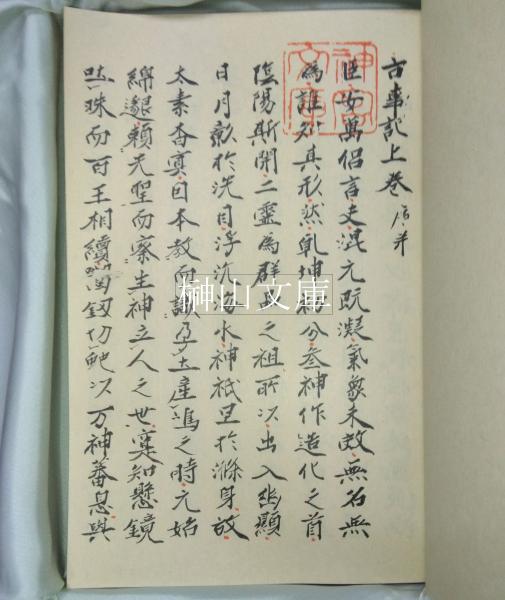 古事記上卷 序并
臣安萬侶言夫混元既凝氣象未效無名無
為誰知其形然乾坤初分參神作造化之首
陰陽斯開二靈為群品之祖所以出入幽顯
日月彰於洗目浮沉海水神祇呈於滌身故
太素杳冥因本教而識孕土產嶋之時元始
綿邈頼先聖而察生神立人之世寔知懸鏡
吐珠而百王相續喫釼切虵以万神蕃息與
榊山文庫